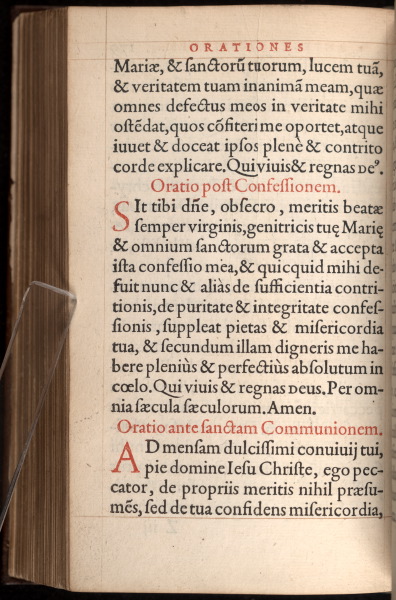 ORATIONES
Mariæ, & sanctorũ tuorum, lucem tuã,
& veritatem tuam in animã meam, quæ
omnes defectus meos in veritate mihi
ostẽdat, quos cõfiteri me oportet, atque
iuuet & doceat ipsos plenè & contrito
corde explicare. Qui viuis & regnas DE⁹.
Oratio post Confessionem.
SIt tibi dñe, obsecro, meritis beatæ
semper virginis, genitricis tuę Marię
& omnium sanctorum grata & accepta
ista confessio mea, & quicquid mihi de-
fuit nunc & aliàs de sufficientia contri-
tionis, de puritate & integritate confes-
sionis, suppleat pietas & misericordia
tua, & secundum illam digneris me ha-
bere pleniùs & perfectiùs absolutum in
cœlo. Qui viuis & regnas DEUS. Per om-
nia sæcula sæculorum. Amen.
Oratio ante sanctam Communionem.
AD mensam dulcissimi conuiuij tui,
pie domine Iesu Christe, ego pec-
cator, de propriis meritis nihil præsu-
mẽs, sed de tua confidens misericordia,